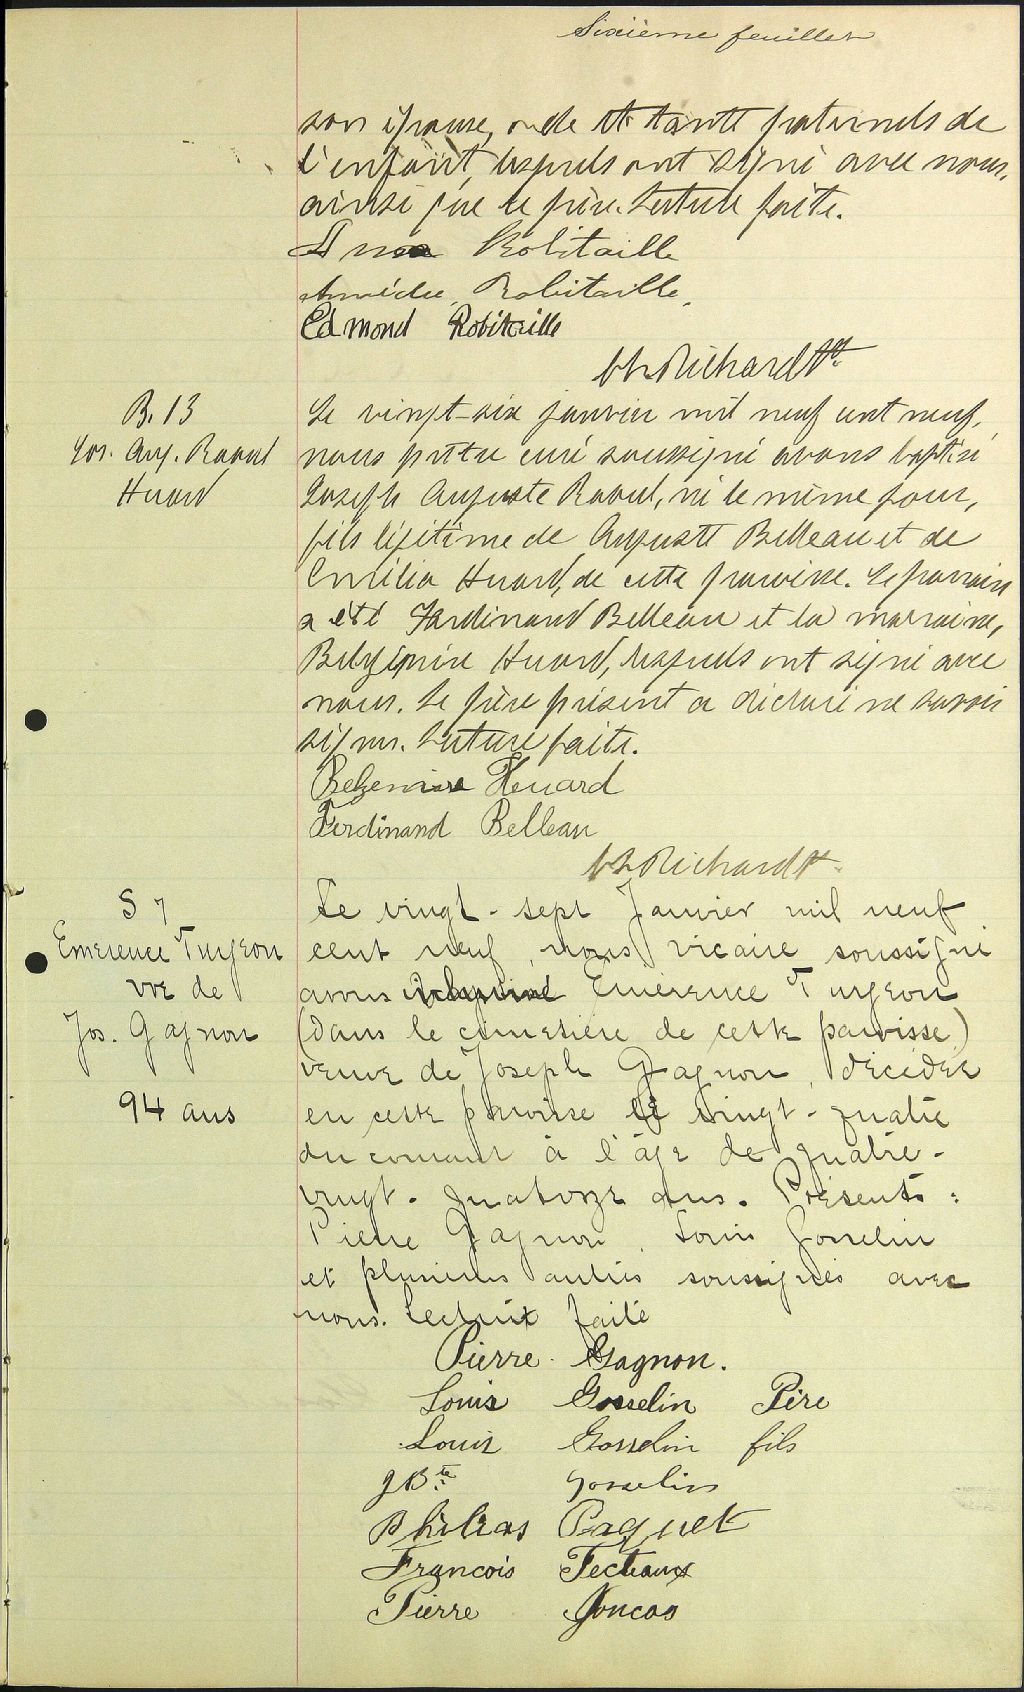 Sixième feuillet
son épouse, oncle et tante paternels de
l'enfant, lesquels ont signé avec nous,
ainsi que le père. Lecture faite.
Robitaille
Amédée Robitaille
Edmond Robitaille
Richard Ptre
B. 13
Jos. Aug. Raoul
Huard
Le vingt-six janvier mil neuf cent neuf,
nous prêtre curé soussigné avons baptisé
Joseph Auguste Raoul, né le même jour,
fils légitime de Auguste Belleau et de
Emilia Huard, de cette paroisse. Le parrain
a été Ferdinand Belleau et la marraine,
Belzémire Huard, lesquels ont signé avec
nous. Le père présent a déclaré ne savoir
signer. Lecture faite.
Belzemire Huard
Ferdinand Belleau
Richard Ptre
S 7
Emerence Turgeon
vve de
Jos. Gagnon
94 ans
Le vingt-sept Janvier mil neuf
cent neuf, nous vicaire soussigné
avons inhumé Emérence Turgeon
(dans le cimetière de cette paroisse)
veuve de Joseph Gagnon, décédée
en cette paroisse le vingt-quatre
du courant à l'âge de quatre-
vingt-quatorze ans. Présents:
Pierre Gagnon, Louis Gosselin
et plusieurs autres soussignés avec
nous. Lecture faite
Pierre Gagnon.
Louis Gosselin Père
Louis Gosselin fils
J Bte Gosselin
Philéas Paquet
Francois Tecteaux
Pierre Joncas